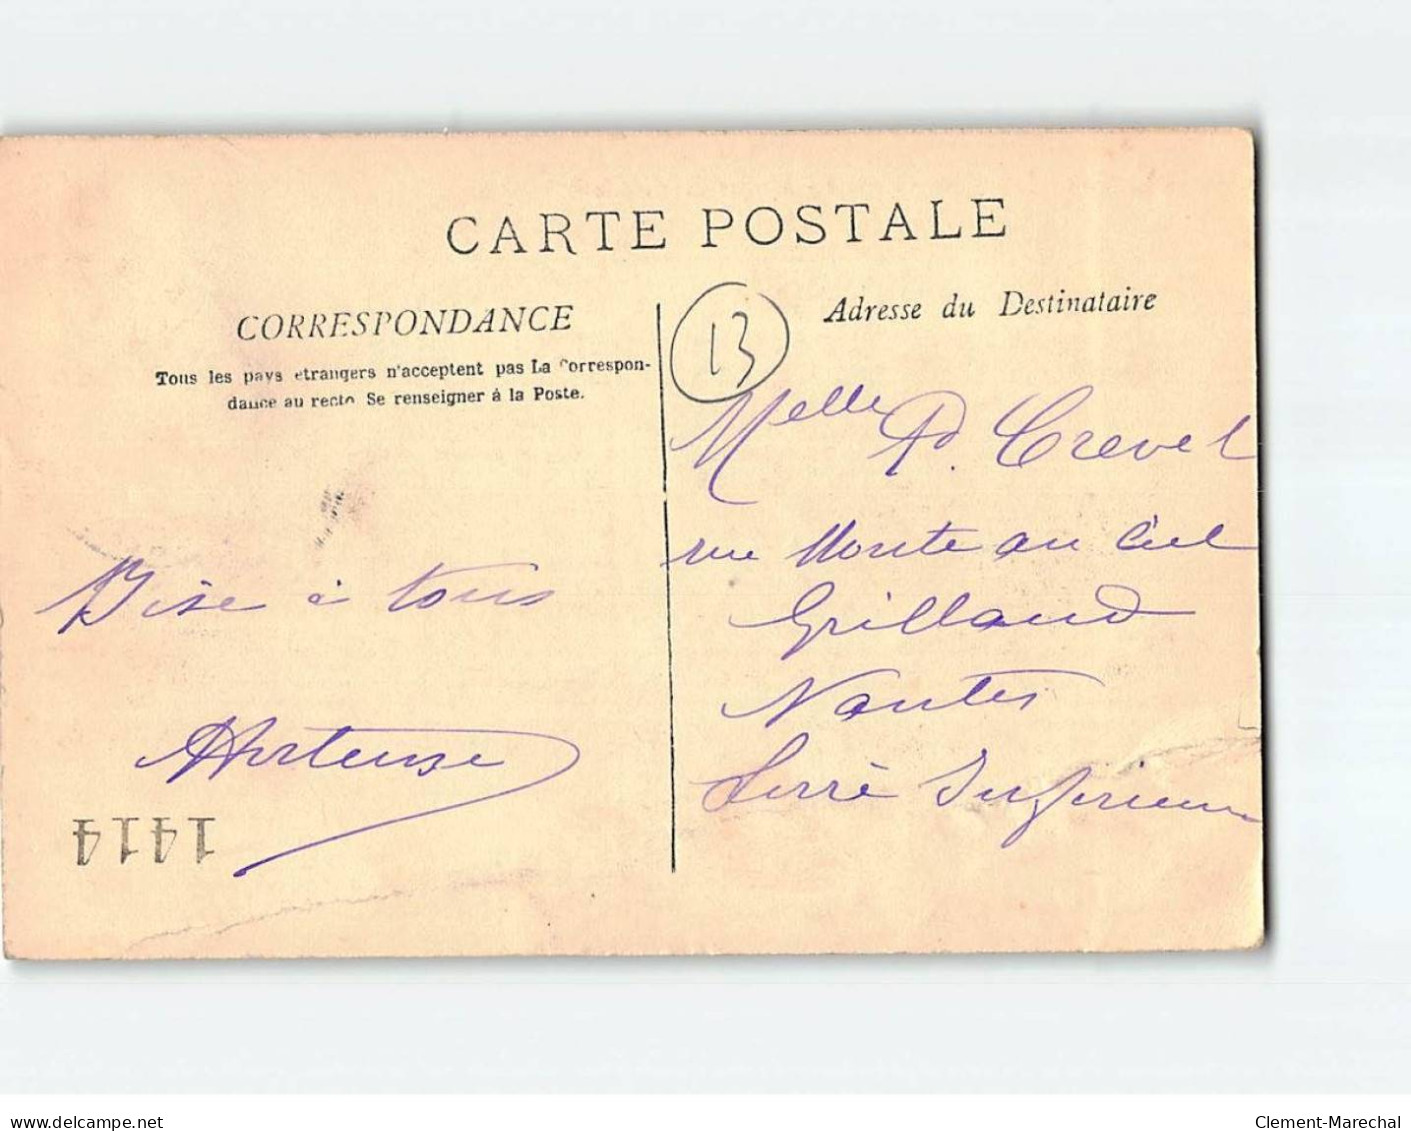 CARTE POSTALE
CORRESPONDANCE
Tous les pays etrangers n'acceptent pas La Correspon-
dance au recto Se renseigner à la Poste.
Bise à tous
Hortense
1414
13
Adresse du Destinataire
Melle D. Crevel
rue Monte au Ciel
Grillaud
Nantes
Loire Inférieure
www.delcampe.net
Clement-Marechal